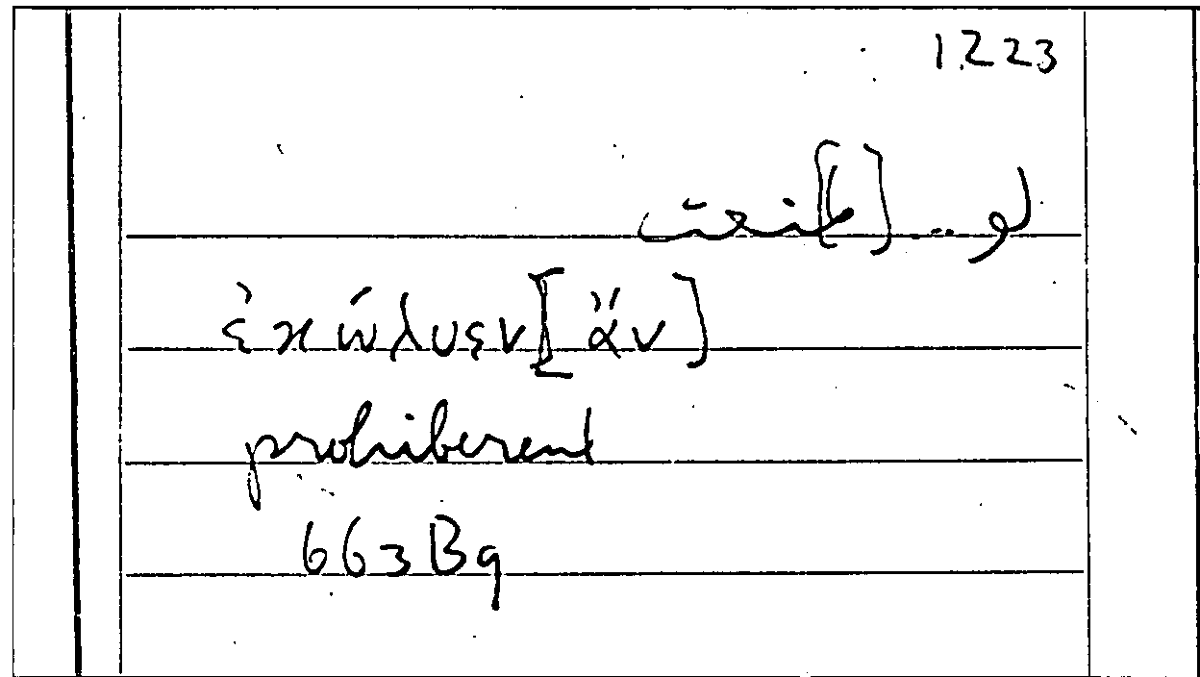 1.223
لو ... [ل]منعت
ἐκώλυεν [ἄν]
prohiberent
663 B9